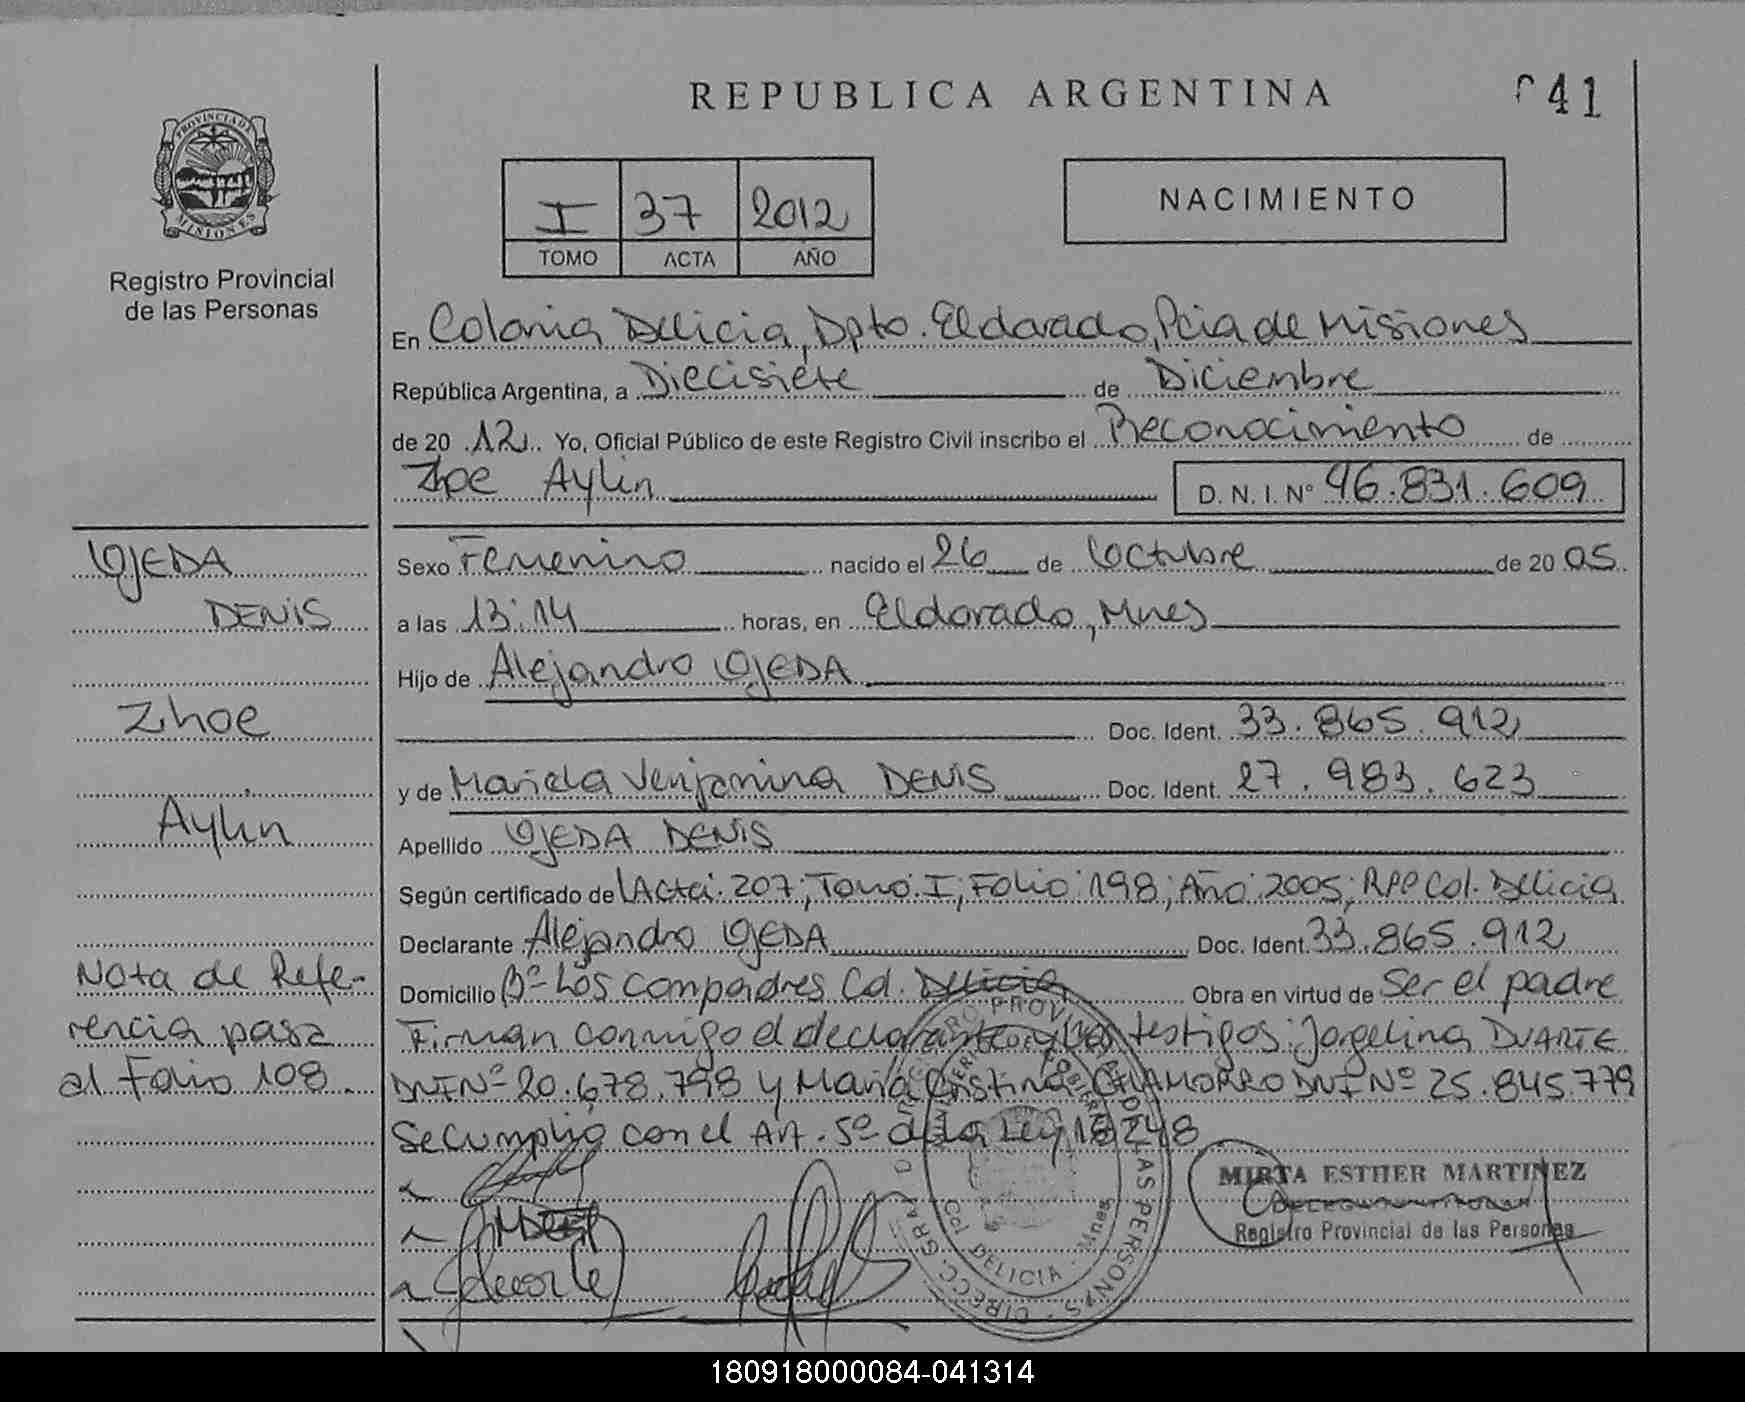 REPUBLICA ARGENTINA
041
PROVINCIA DE
MISIONES
Registro Provincial
de las Personas
I 37 2012
TOMO ACTA AÑO
NACIMIENTO
En Colonia Delicia, Dpto. Eldorado, Pcia de Misiones
República Argentina, a Diecisiete de Diciembre
de 20 12 Yo, Oficial Público de este Registro Civil inscribo el Reconocimiento de
Zhoe Aylin D. N. I. N° 96.831.609
OJEDA
DENIS
Zhoe
Aylin
Nota de Refe-
rencia pasa
al Folio 108
Sexo Femenino nacido el 26 de Octubre de 20 05
a las 13:14 horas, en Eldorado, Mnes
Hijo de Alejandro OJEDA
Doc. Ident. 33.865.912
y de Mariela Venjamina DENIS Doc. Ident. 27.983.623
Apellido OJEDA DENIS
Según certificado de Acta: 207; Tomo: I; Folio: 198; Año: 2005; RPP Col. Delicia
Declarante Alejandro OJEDA Doc. Ident. 33.865.912
Domicilio B° Los Compadres Col. Delicia Obra en virtud de Ser el padre
Firman conmigo el declarante y los testigos: Jorgelina DUARTE
DNI N° 20.678.798 y Maria Cristina CHAMORRO DNI N° 25.845.779
Se cumplio con el Art. 5° de la Ley 18248
MIRTA ESTHER MARTINEZ
Registro Provincial de las Personas
Col DELICIA - Mnes
180918000084-041314